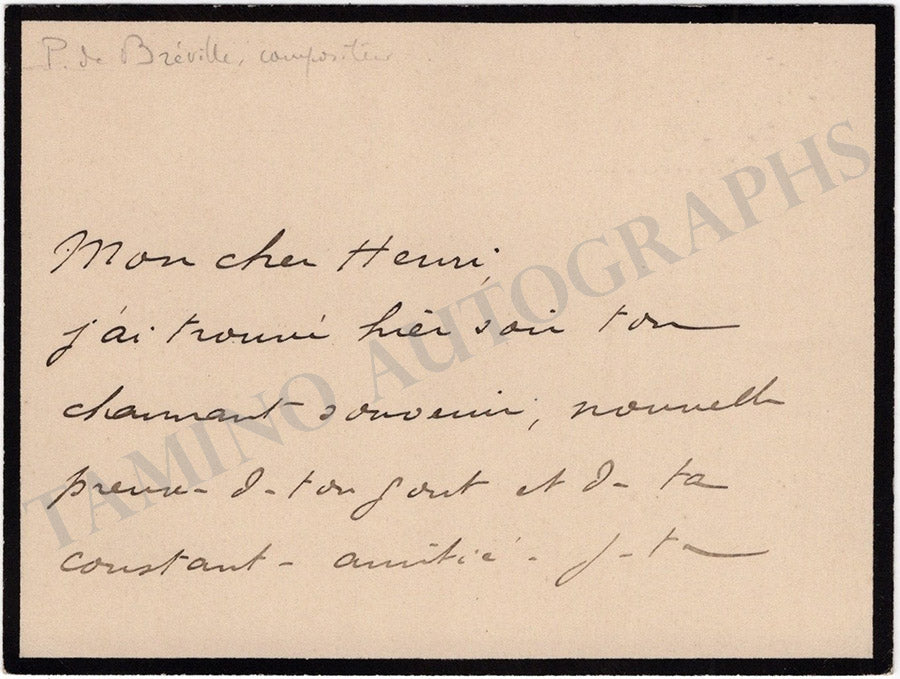 P. de Bréville, compositeur
Mon cher Henri,
j'ai trouvé hier soir ton
charmant souvenir, nouvelle
preuve de ton goût et de ta
constante amitié. Je te
TAMINO AUTOGRAPHS